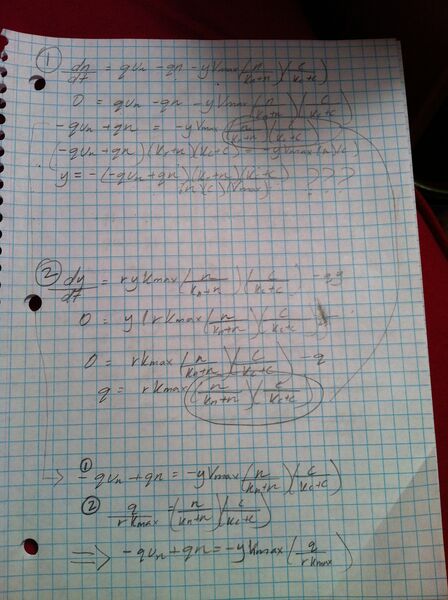 ① dn/dt = qun - qn - yVmax(n/(kn+n))(c/(kc+c))
0 = qun - qn - yVmax(n/(kn+n))(c/(kc+c))
-qun + qn = -yVmax(n/(kn+n))(c/(kc+c))
(-qun + qn)(kn+n)(kc+c) = -yVmax(n)(c)
y = -(-qun + qn)(kn+n)(kc+c)/((n)(c)(Vmax)) ???
② dy/dt = rykmax(n/(kn+n))(c/(kc+c)) - qy
0 = y(rkmax(n/(kn+n))(c/(kc+c))
0 = rkmax(n/(kn+n))(c/(kc+c)) - q
q = rkmax(n/(kn+n))(c/(kc+c))
① -qun + qn = -yVmax(n/(kn+n))(c/(kc+c))
② q/(rkmax) = (n/(kn+n))(c/(kc+c))
⇒ -qun + qn = -ykmax(q/(rkmax))